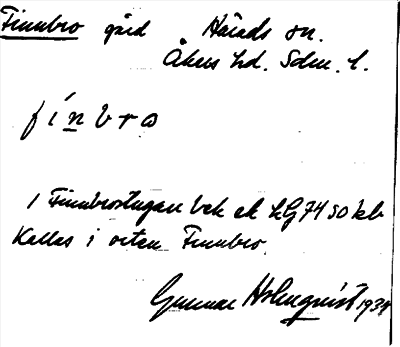 Finnbro gård Härads sn.
Åkers hd. Sdm. l.
fínbro
1 Finnbrostugan bek ek LG 74 so kb
Kallas i orten Finnbro.
Gunnar Holmquist 1934